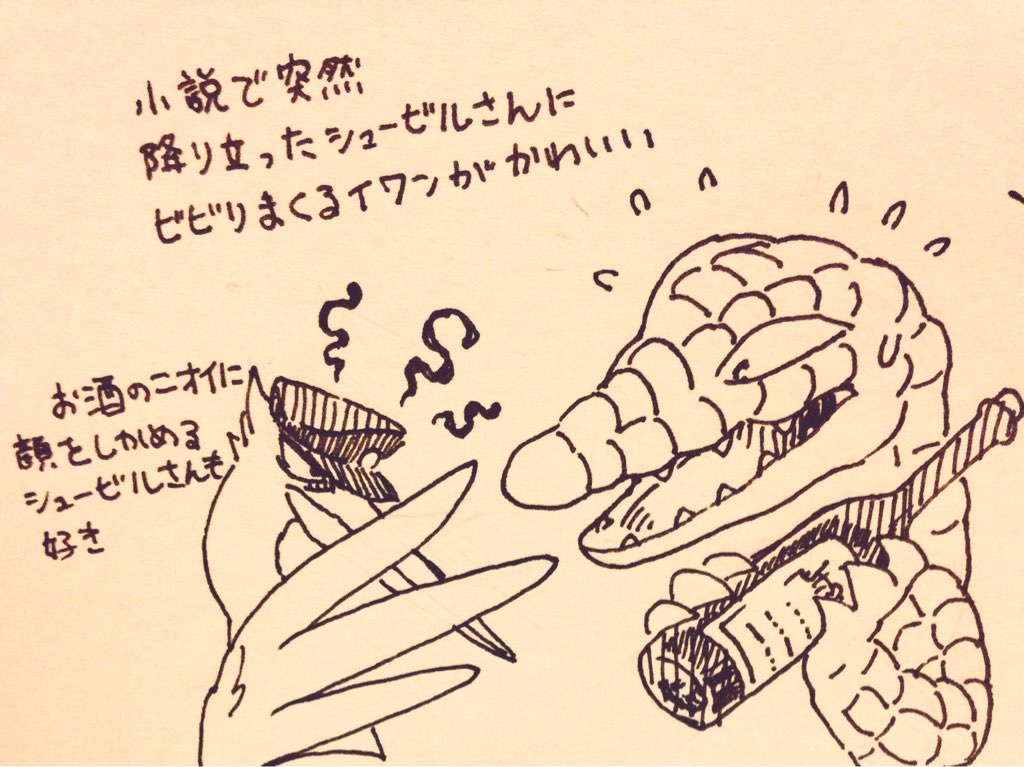 小説で突然
降り立ったシュービルさんに
ビビりまくるイワンがかわいい
お酒のニオイに
顔をしかめる
シュービルさんも
好き